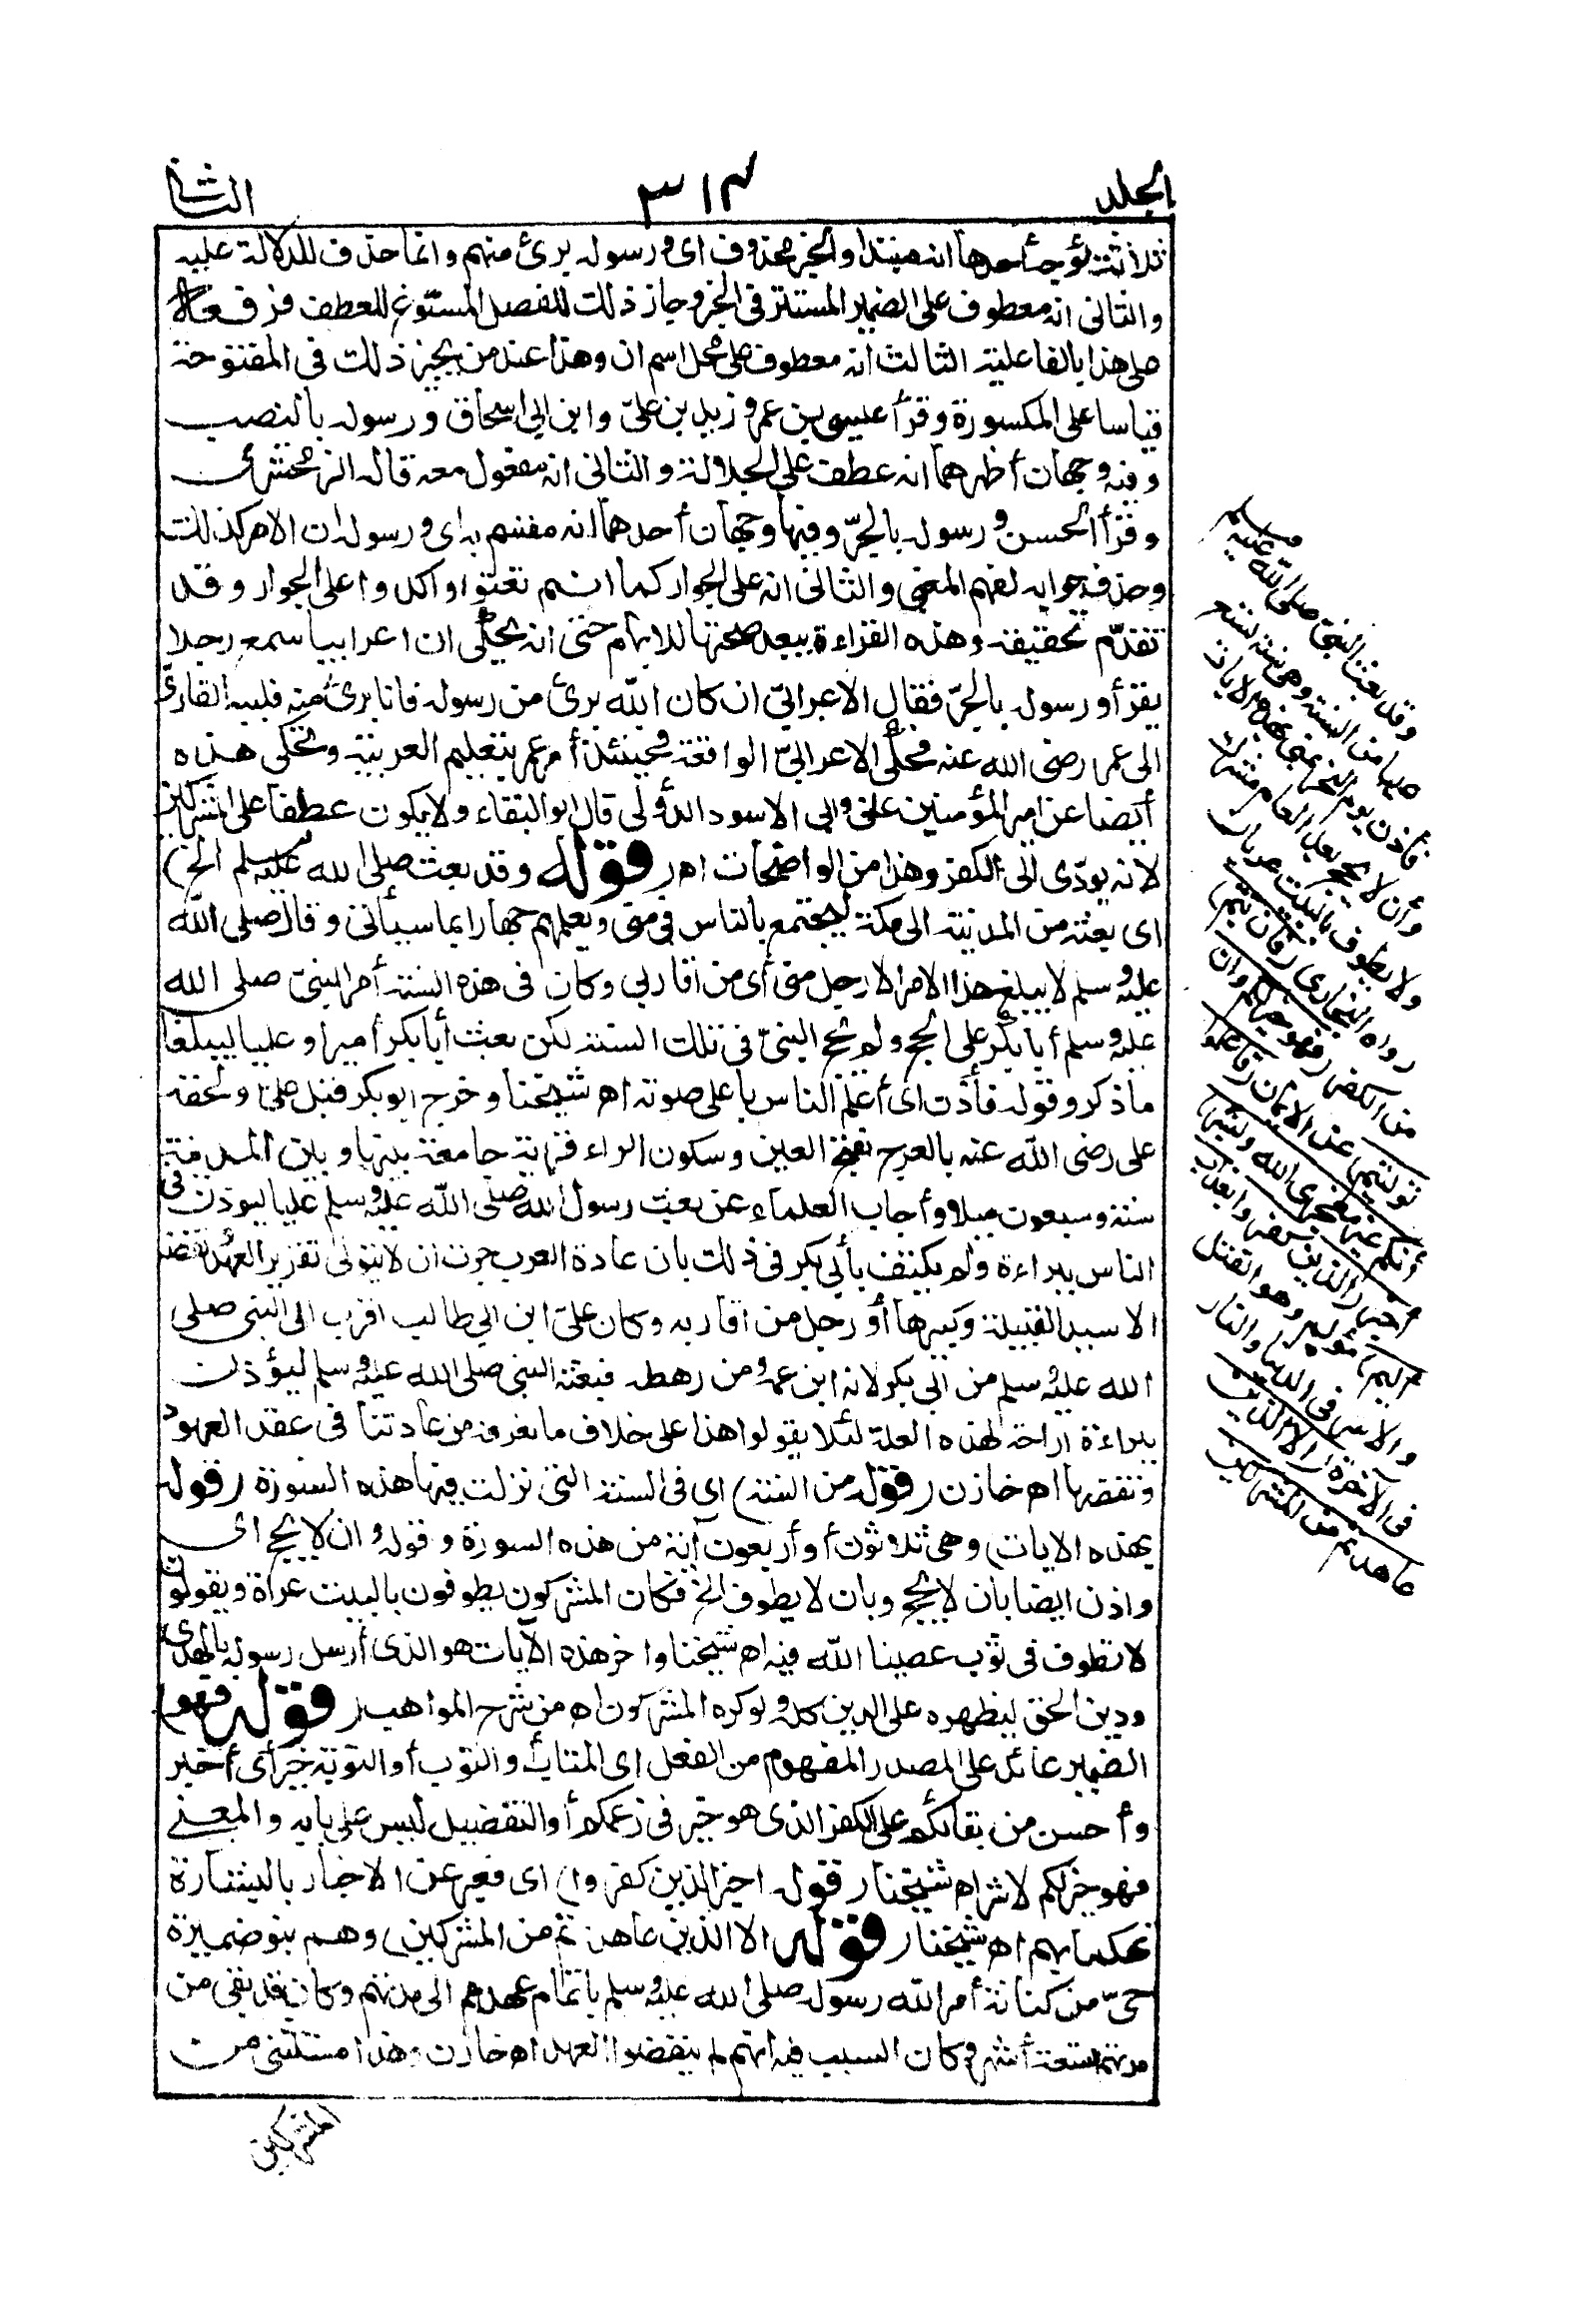 الجلد
٣١٤
الثانى
ثلاثة أوجه أحدها انه مبتدأ والخبر محذوف اى ورسوله برئ منهم وانما حذف للدلالة عليه
والثانى انه معطوف على الضمير المستتر فى الخبر وجاز ذلك للفصل المسوّغ للعطف فرفعه
على هذا بالفاعلية الثالث انه معطوف على محل اسم ان وهذا عند من يجيز ذلك فى المفتوحة
قياسا على المكسورة وقرأ عيسى بن عمر وزيد بن علىّ وابن ابى اسحاق ورسوله بالنصب
وفيه وجهان أظهرهما انه عطف على الجلالة والثانى انه مفعول معه قاله الزمخشرى
وقرأ الحسن ورسوله بالجرّ وفيها وجهان أحدهما انه مقسم به اى ورسوله ان الامر كذلك
وحذف جوابه لفهم المعنى والثانى انه على الجوار كما انهم نعتوا واكدوا على الجوار وقد
تقدّم تحقيقه وهذه القراءة يبعد صحتها للايهام حتى انه يحكى ان اعرابيا سمع رجلا
يقرأ ورسوله بالجرّ فقال الاعرابىّ ان كان الله برئ من رسوله فانا برئ منه فلببه القارئ
الى عمر رضى الله عنه فحكى الاعرابىّ الواقعة فحينئذ أمر عمر بتعليم العربية وتحكى هذه
أيضا عن امير المؤمنين علىّ وابى الاسود الدؤلى قال ابو البقاء ولا يكون عطفا على المشركين
لانه يؤدّى الى الكفر وهذا من الواضحات اهـ (قوله وقد بعث صلى الله عليه وسلم الخ)
اى بعثه من المدينة الى مكة ليجتمع بالناس فى منى ويعلمهم جهارا بما سيأتى وقال صلى الله
عليه وسلم لا يبلغ هذا الامر الا رجل منى أى من أقاربى وكان فى هذه السنة أمر النبىّ صلى الله
عليه وسلم أبا بكر على الحج ولم يحج النبىّ فى تلك السنة لكن بعث أبا بكر أميرا وعليا ليبلغا
ما ذكر وقوله فأذن اى أعلم الناس باعلى صوته اهـ شيخنا وخرج ابو بكر قبل علىّ ولحقه
على رضى الله عنه بالعرج بفتح العين وسكون الراء قرية جامعة بينها وبين المدينة
ستة وسبعون ميلا وأجاب العلماء عن بعث رسول الله صلى الله عليه وسلم عليا ليؤذن فى
الناس ببراءة ولم يكتف بأبى بكر فى ذلك بان عادة العرب جرت ان لا يتولى تقرير العهد ونقضه
الا سيد القبيلة وكبيرها أو رجل من أقاربه وكان علىّ ابن ابى طالب اقرب الى النبى صلى
الله عليه وسلم من ابى بكر لانه ابن عمه ومن رهطه فبعثه النبى صلى الله عليه وسلم ليؤذن
ببراءة ازاحة لهذه العلة لئلا يقولوا هذا على خلاف ما نعرفه من عادتنا فى عقد العهود
ونقضها اهـ خازن (قوله من السنة) اى فى السنة التى نزلت فيها هذه السورة (قوله
بهذه الايات) وهى ثلاثون أو أربعون آية من هذه السورة وقوله وان لا يحج اى
واذن ايضا بان لا يحج وبان لا يطوف الخ فكان المشركون يطوفون بالبيت عراة ويقولون
لا نطوف فى ثوب عصينا الله فيه اهـ شيخنا واخر هذه الآيات هو الذى أرسل رسوله بالهدى
ودين الحق ليظهره على الدين كله ولو كره المشركون اهـ من شرح المواهب (قوله فهو)
الضمير عائد على المصدر المفهوم من الفعل اى المتاب والتوب أو التوبة خير أى أخير
وأحسن من بقائكم على الكفر الذى هو خير فى زعمكم أو التفضيل ليس على بابه والمعنى
فهو خير لكم لا شر اهـ شيخنا (قوله اخبر الذين كفروا) اى فعبر عن الاخبار بالبشارة
تهكما بهم اهـ شيخنا (قوله الا الذين عاهدتم من المشركين) وهم بنو ضميرة
حىّ من كنانة أمر الله رسوله صلى الله عليه وسلم باتمام عهدهم الى مدتهم وكان قد بقى من
مدتهم تسعة أشهر وكان السبب فيه انهم لم ينقضوا العهد اهـ خازن وهذا مستثنى من
المشركين
وقد بعث النبى صلى الله عليه وسلم
عليا من السنة وهى سنة تسع
فأذن يوم النحر بمنى بهذه الايات
وأن لا يحج بعد العام مشرك
ولا يطوف بالبيت عريان
رواه البخارى (فان تبتم)
من الكفر (فهو خير لكم وان
توليتم) عن الايمان (فاعلموا
أنكم غير معجزى الله وبشر)
أخبر (الذين كفروا بعذاب
اليم) مؤلم وهو القتل
والاسر فى الدنيا والنار
فى الآخرة (الا الذين
عاهدتم من المشركين